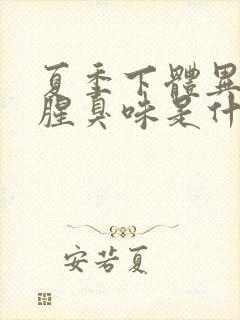 夏季下體異
腥臭味是什
安若夏